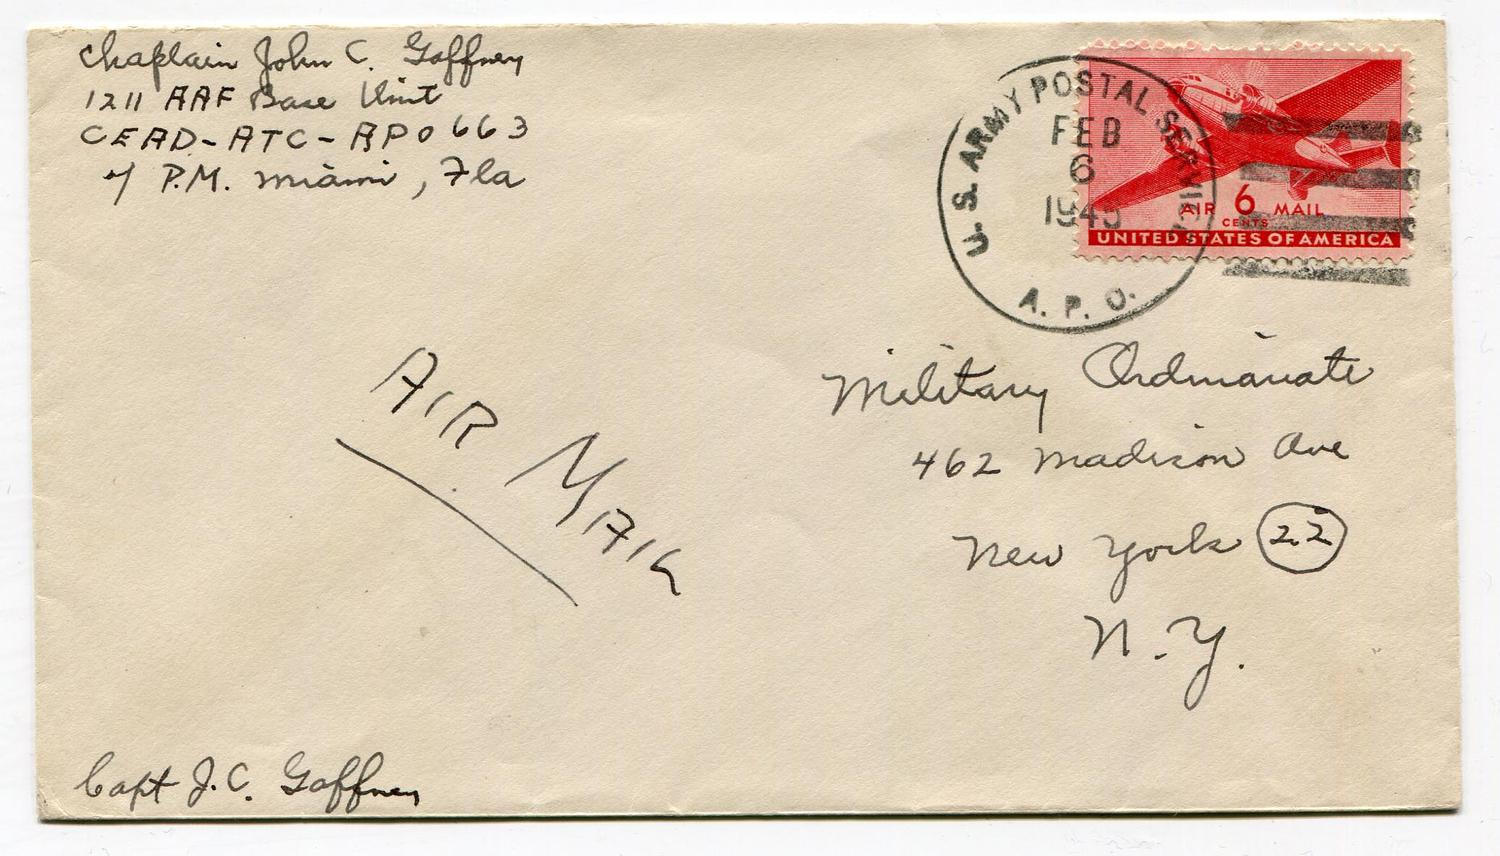 Chaplain John C. Gaffney
1211 AAF Base Unit
CEAD-ATC-APO 663
℅ P.M. Miami, Fla
U.S. ARMY POSTAL SERVICE
FEB
6
1945
A. P. O.
AIR 6 MAIL
CENTS
UNITED STATES OF AMERICA
AIR MAIL
Military Ordinariate
462 Madison Ave
New York 22
N.Y.
Capt J.C. Gaffney